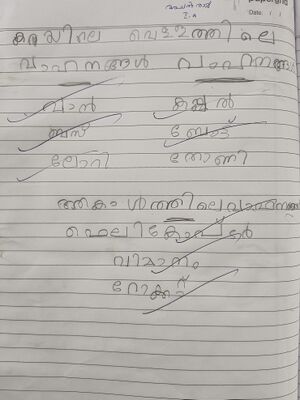 papergrid
Date: / /
I A
കരയിലെ വെള്ളത്തിലെ
വാഹനങ്ങൾ വാഹനങ്ങൾ
വാൻ കപ്പൽ
ബസ് ബോട്ട്
ലോറി തോണി
ആകാശത്തിലെ വാഹനങ്ങൾ
ഹെലികോപ്റ്റർ
വിമാനം
റോക്കറ്റ്